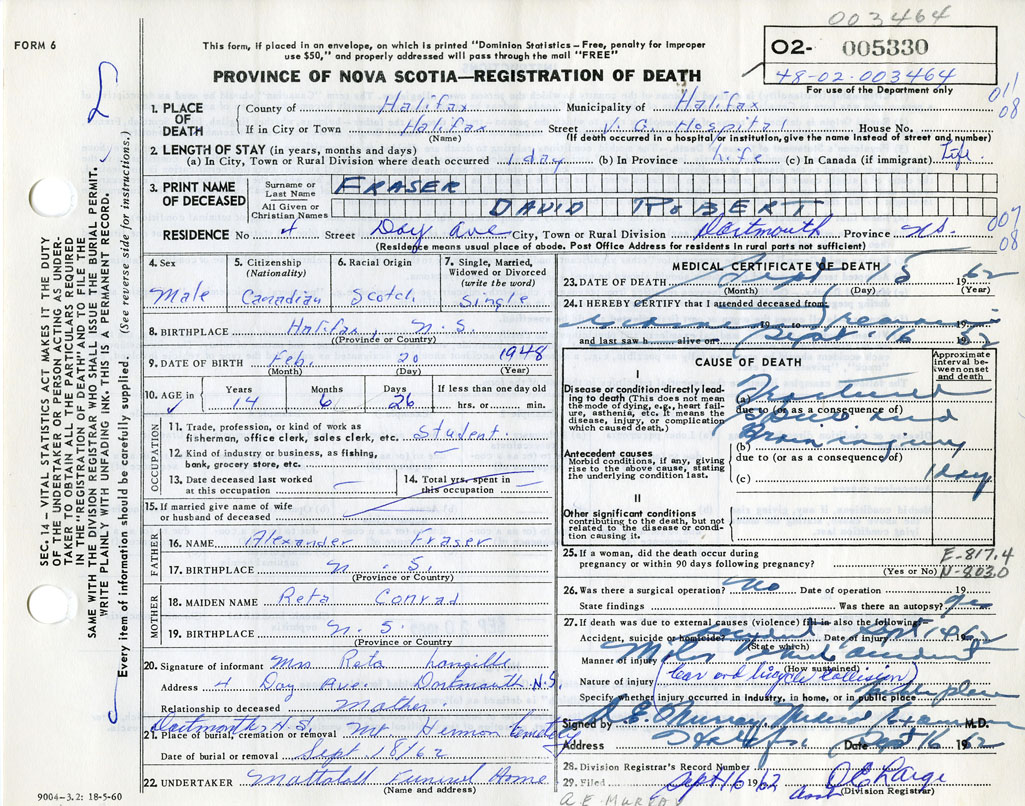 003464
FORM 6
This form, if placed in an envelope, on which is printed "Dominion Statistics – Free, penalty for improper
use $50," and properly addressed will pass through the mail "FREE"
02- 005330
48-02-003464
For use of the Department only
PROVINCE OF NOVA SCOTIA—REGISTRATION OF DEATH
011
08
1. PLACE OF DEATH County of Halifax Municipality of Halifax
If in City or Town Halifax Street V. G. Hospital House No.
(Name) (If death occurred in a hospital or institution, give the name instead of street and number)
2. LENGTH OF STAY (in years, months and days)
(a) In City, Town or Rural Division where death occurred 1 day (b) In Province Life (c) In Canada (if immigrant) Life.
3. PRINT NAME OF DECEASED Surname or Last Name FRASER
All Given or Christian Names DAVID ROBERT
007
08
RESIDENCE No 4 Street Day Ave City, Town or Rural Division Dartmouth Province N.S.
(Residence means usual place of abode. Post Office Address for residents in rural parts not sufficient)
4. Sex Male
5. Citizenship (Nationality) Canadian
6. Racial Origin Scotch
7. Single, Married, Widowed or Divorced (write the word) Single
8. BIRTHPLACE Halifax, N.S.
(Province or Country)
9. DATE OF BIRTH Feb. 20 1948
(Month) (Day) (Year)
10. AGE in Years 14 Months 6 Days 26 If less than one day old hrs. or min.
OCCUPATION
11. Trade, profession, or kind of work as
fisherman, office clerk, sales clerk, etc. Student
12. Kind of industry or business, as fishing,
bank, grocery store, etc. —
13. Date deceased last worked
at this occupation —
14. Total yrs. spent in
this occupation —
15. If married give name of wife
or husband of deceased
FATHER
16. NAME Alexander Fraser
17. BIRTHPLACE N. S.
(Province or Country)
MOTHER
18. MAIDEN NAME Reta Conrad
19. BIRTHPLACE N. S.
(Province or Country
20. Signature of informant Mrs Reta Langille
Address 4 Day Ave. Dartmouth N.S.
Relationship to deceased Mother.
Dartmouth N.S.
21. Place of burial, cremation or removal Mt Hermon Cemetery
Date of burial or removal Sept 18/62
22. UNDERTAKER Mattatall Funeral Home
(Name and address)
9004-3.2: 18-5-60
MEDICAL CERTIFICATE OF DEATH
23. DATE OF DEATH Sept 15 1962
(Month) (Day) (Year)
24. I HEREBY CERTIFY that I attended deceased from
19 to 19
and last saw h alive on Sept. 16 1962
CAUSE OF DEATH
Approximate interval between onset and death
I
Disease or condition directly leading to death (This does not mean the mode of dying, e.g., heart failure, asthenia, etc. It means the disease, injury, or complication which caused death.)
(a) Fractured
due to (or as a consequence of)
Skull and
(b) Brain injury
Antecedent causes
Morbid conditions, if any, giving rise to the above cause, stating the underlying condition last.
due to (or as a consequence of)
(c) 1 day
II
Other significant conditions
contributing to the death, but not related to the disease or condition causing it.
25. If a woman, did the death occur during
pregnancy or within 90 days following pregnancy?
(Yes or No)
E-817.4
N-803.0
26. Was there a surgical operation? No Date of operation 19
State findings Was there an autopsy? yes
27. If death was due to external causes (violence) fill in also the following:
Accident, suicide or homicide? accident Date of injury Sept 14 1962
(State which)
Manner of injury Motor Vehicle accident
(How sustained)
Nature of injury (Car and bicycle collision)
Specify whether injury occurred in industry, in home, or in public place public place
Signed by A. E. Murray Medical Examiner M.D.
Address Halifax Date Sept 16 1962
28. Division Registrar's Record Number
29. Filed Sept 16 1962
(Division Registrar)
SEC. 14 – VITAL STATISTICS ACT MAKES IT THE DUTY
OF THE UNDERTAKER OR PERSON ACTING AS UNDERTAKER
TO OBTAIN ALL THE PARTICULARS REQUIRED
IN THE "REGISTRATION OF DEATH" AND TO FILE THE
SAME WITH THE DIVISION REGISTRAR WHO SHALL ISSUE THE BURIAL PERMIT.
WRITE PLAINLY WITH UNFADING INK. THIS IS A PERMANENT RECORD.
Every item of information should be carefully supplied. (See reverse side for instructions.)
A E Murray